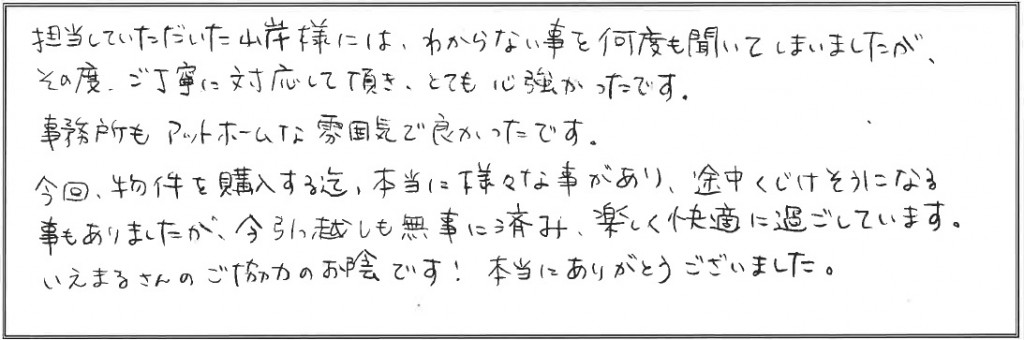 担当していただいた山岸様には、わからない事を何度も聞いてしまいましたが、
その度、ご丁寧に対応して頂き、とても心強かったです。
事務所もアットホームな雰囲気で良かったです。
今回、物件を購入する迄、本当に様々な事があり、途中くじけそうになる
事もありましたが、今引っ越しも無事に済み、楽しく快適に過ごしています。
いえまるさんのご協力のお陰です！ 本当にありがとうございました。